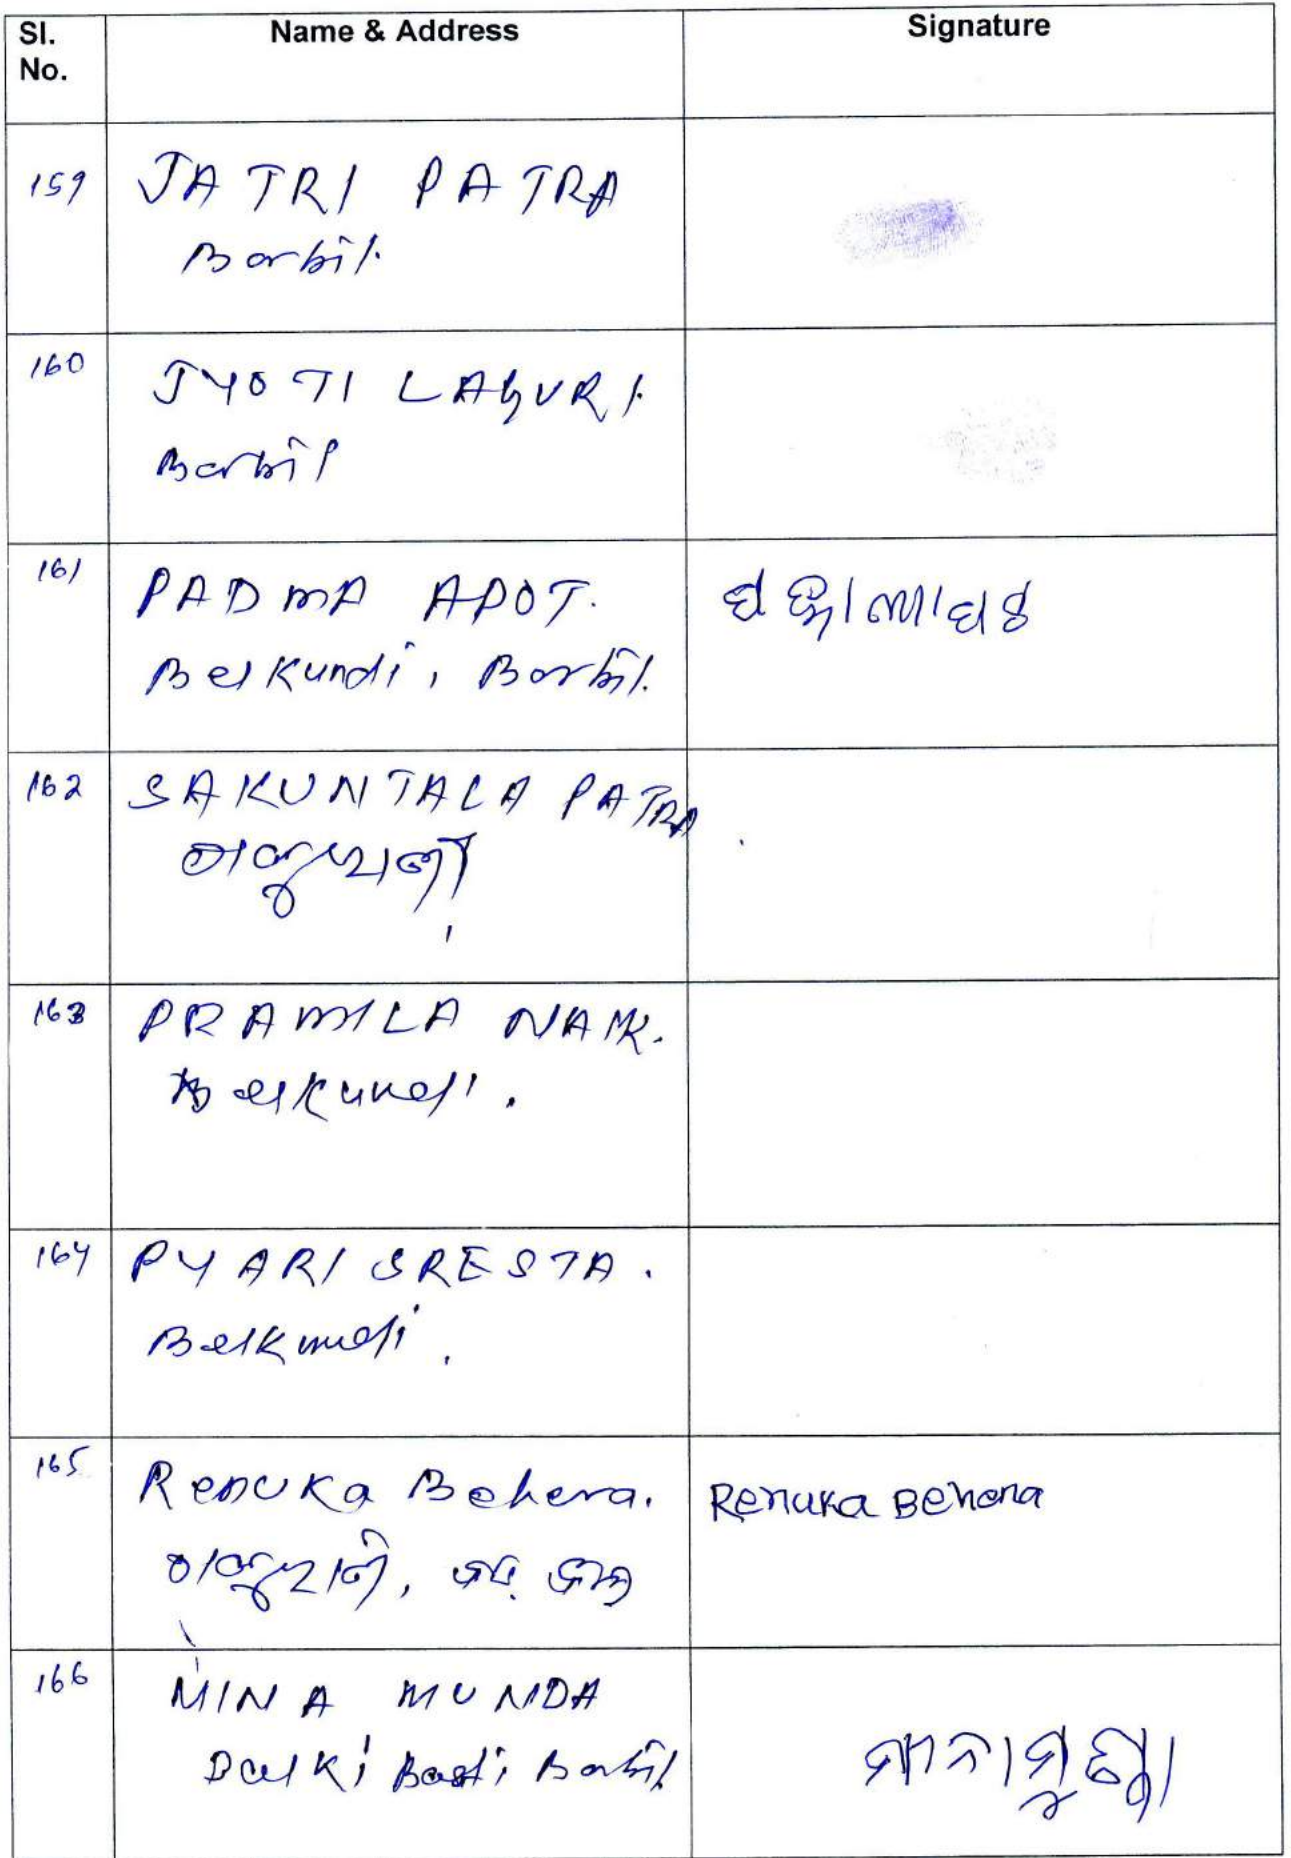 Sl. No.
Name & Address
Signature
159
JATRI PATRA
Barbil.
160
JYOTI LAGURI.
Barbil
161
PADMA APOT.
Belkundi, Barbil.
162
SAKUNTALA PATRA
163
PRAMILA NAIK.
Belkundi.
164
PYARI SRESTA.
Belkundi.
165
Renuka Behera.
Renuka Behera
166
MINA MUNDA
Dalki Basti Barbil
ମୀନା ମୁଣ୍ଡା